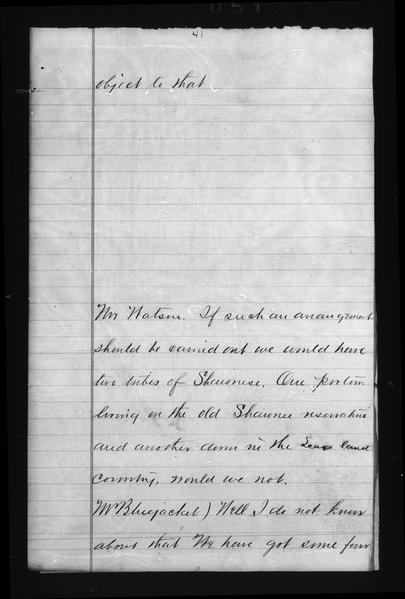 41
object to that
Mr Watson. If such an arrangement
should be carried out we would have
two tribes of Shawnese. One portion
living on the old Shawnee reservation
and another down in the land
country, would we not.
Mr Bluejacket) Well I do not know
about that We have got some four